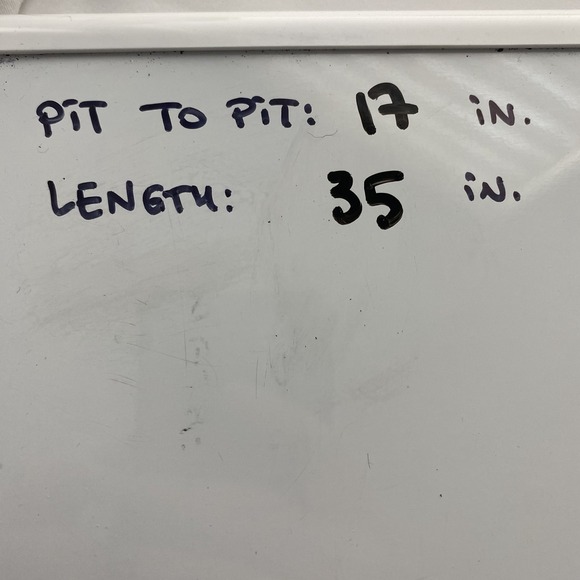 PiT TO PiT: 17 iN.
LENGTH: 35 iN.